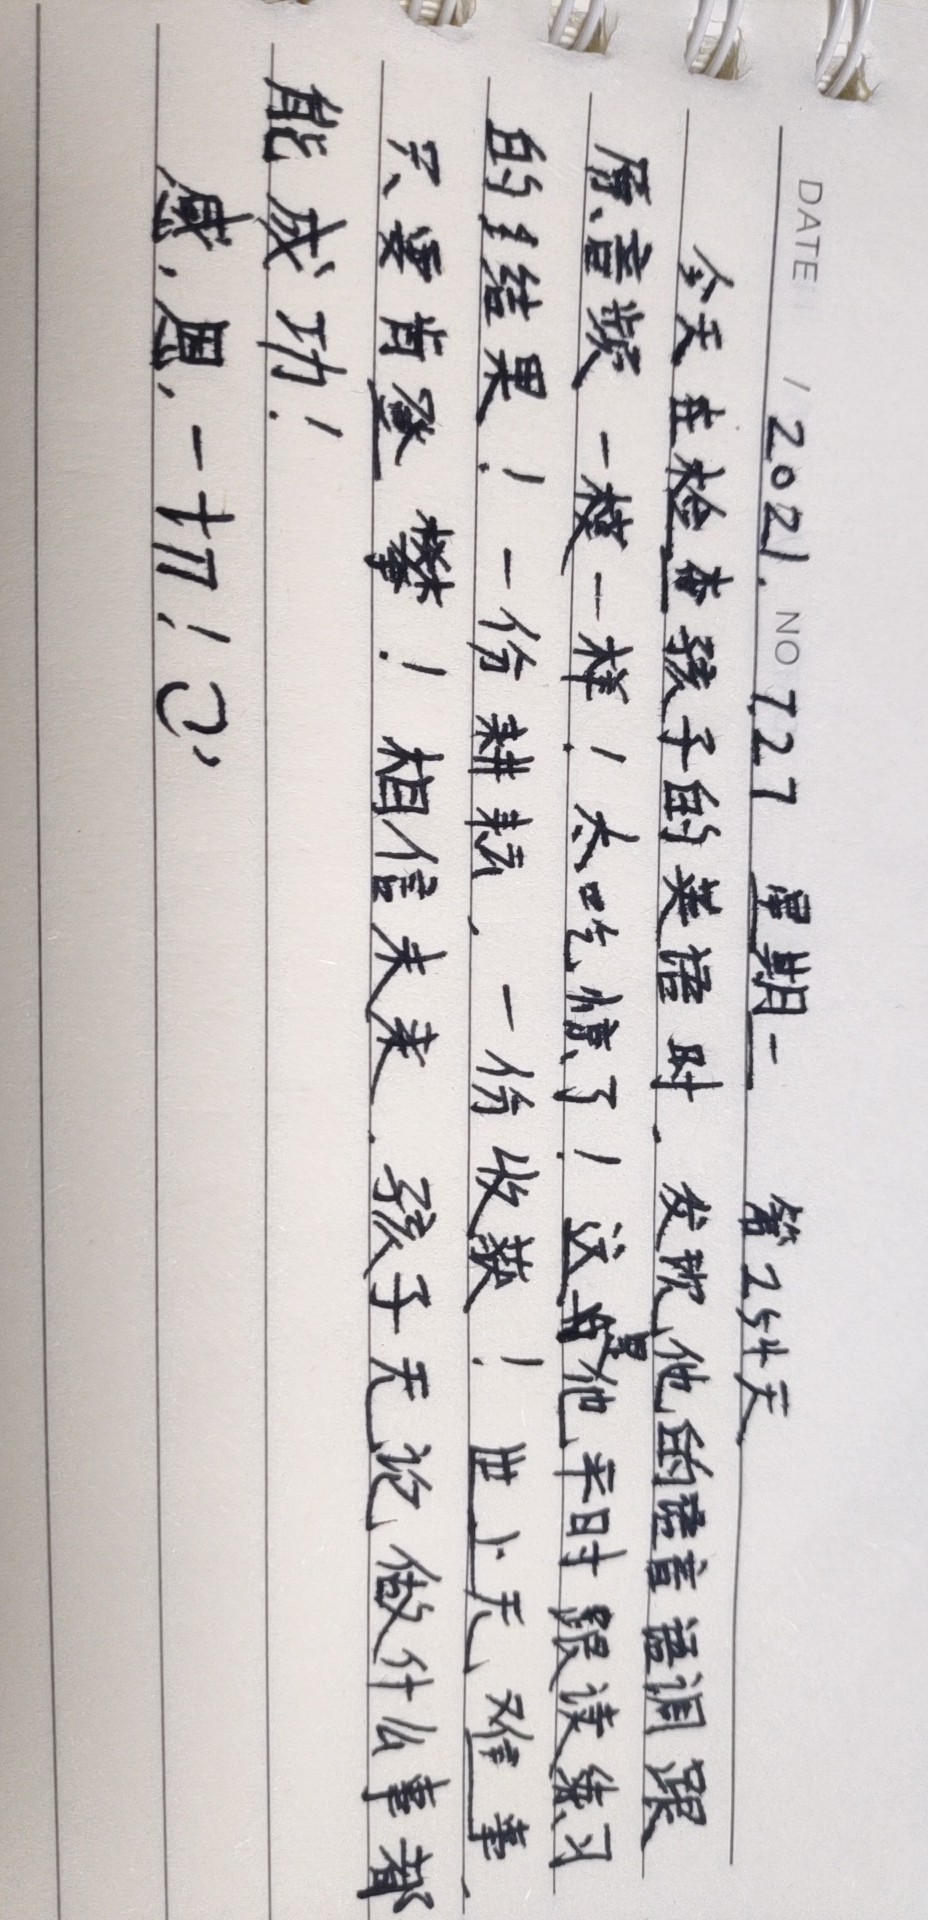 DATE / 2021. NO 7.27 星期一 第254天
今天在检查孩子的英语时.发现他的语言语调跟
原音频一模一样!太吃惊了!这是他平时跟读练习
的结果!一份耕耘.一份收获!世上无难事.
只要肯登攀!相信未来.孩子无论做什么事都
能成功!
感恩一切!